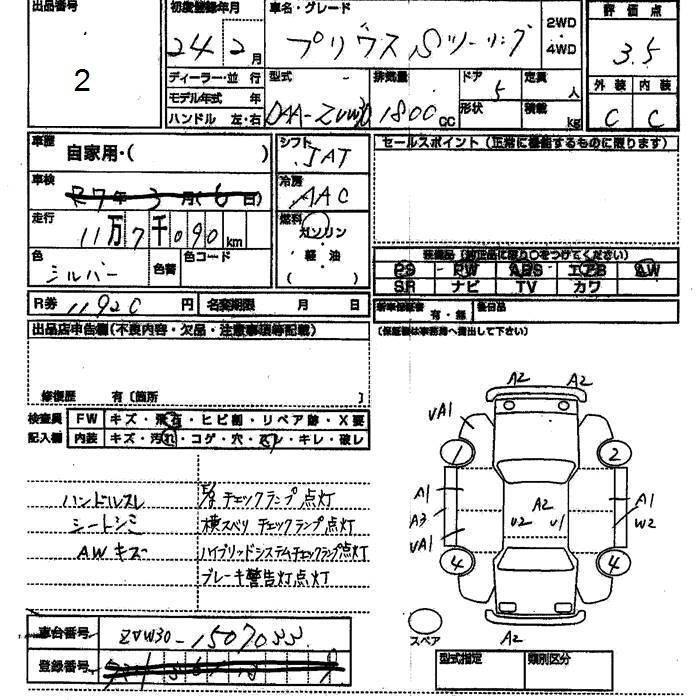 出品番号
2
初度登録年月
24年2月
車名・グレード
プリウス Sツーリング
2WD
4WD
評価点
3.5
外装 内装
C C
ディーラー・並行
モデル年式 年
ハンドル 左・右
型式
DAA-ZVW30
排気量
1800cc
ドア
5
形状
定員
人
積載
kg
車歴
自家用・( )
車検
R7年3月(6日)
走行
11万7千090km
色
シルバー
色替
色コード
シフト
IAT
冷房
AAC
燃料
ガソリン
軽油
( )
セールスポイント(正常に機能するものに限ります)
装備品(純正品に限り○をつけてください)
PS PW ABS エアB AW
SR ナビ TV カワ
新車保証書
有・無
後日品
(保証書は事務局へ提出して下さい)
R券
円
名変期限 月 日
出品店申告欄(不良内容・欠品・注意事項等記載)
修復歴 有(箇所 )
検査員
記入欄
FW キズ・飛石・ヒビ割・リペア跡・X要
内装 キズ・汚れ・コゲ・穴・スレ・キレ・破レ
ハンドルスレ
シートシミ
AWキズ
チェックランプ点灯
横スベリチェックランプ点灯
ハイブリッドシステムチェックランプ点灯
ブレーキ警告灯点灯
A2 A2
UA1
1 2
A1
A3
UA1
A2
U2 U1
A1
W2
4 4
スペア
A2
車台番号
ZVW30-
登録番号
型式指定
類別区分